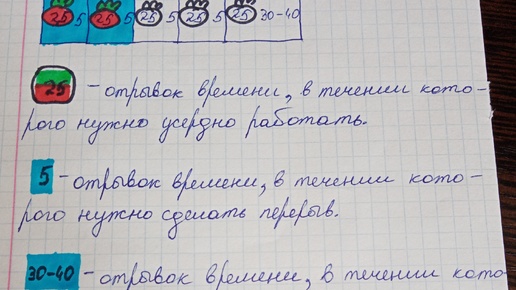 25 5 25 5 25 5 25 5 25 30-40
25 - отрывок времени, в течении кото-
рого нужно усердно работать.
5 - отрывок времени, в течении кото-
рого нужно сделать перерыв.
30-40 - отрывок времени, в течении кото